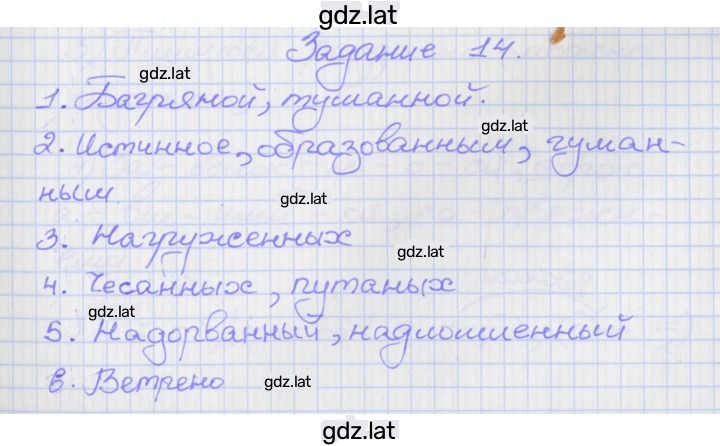 gdz.lat
Задание 14.
gdz.lat
1. Багряной, туманной.
gdz.lat
2. Истинное, образованным, гуман-
ным.
gdz.lat
3. Нагруженных
gdz.lat
4. Чесанных, путаных
gdz.lat
5. Надорванный, надломленный
6. Ветрено
gdz.lat
gdz.lat